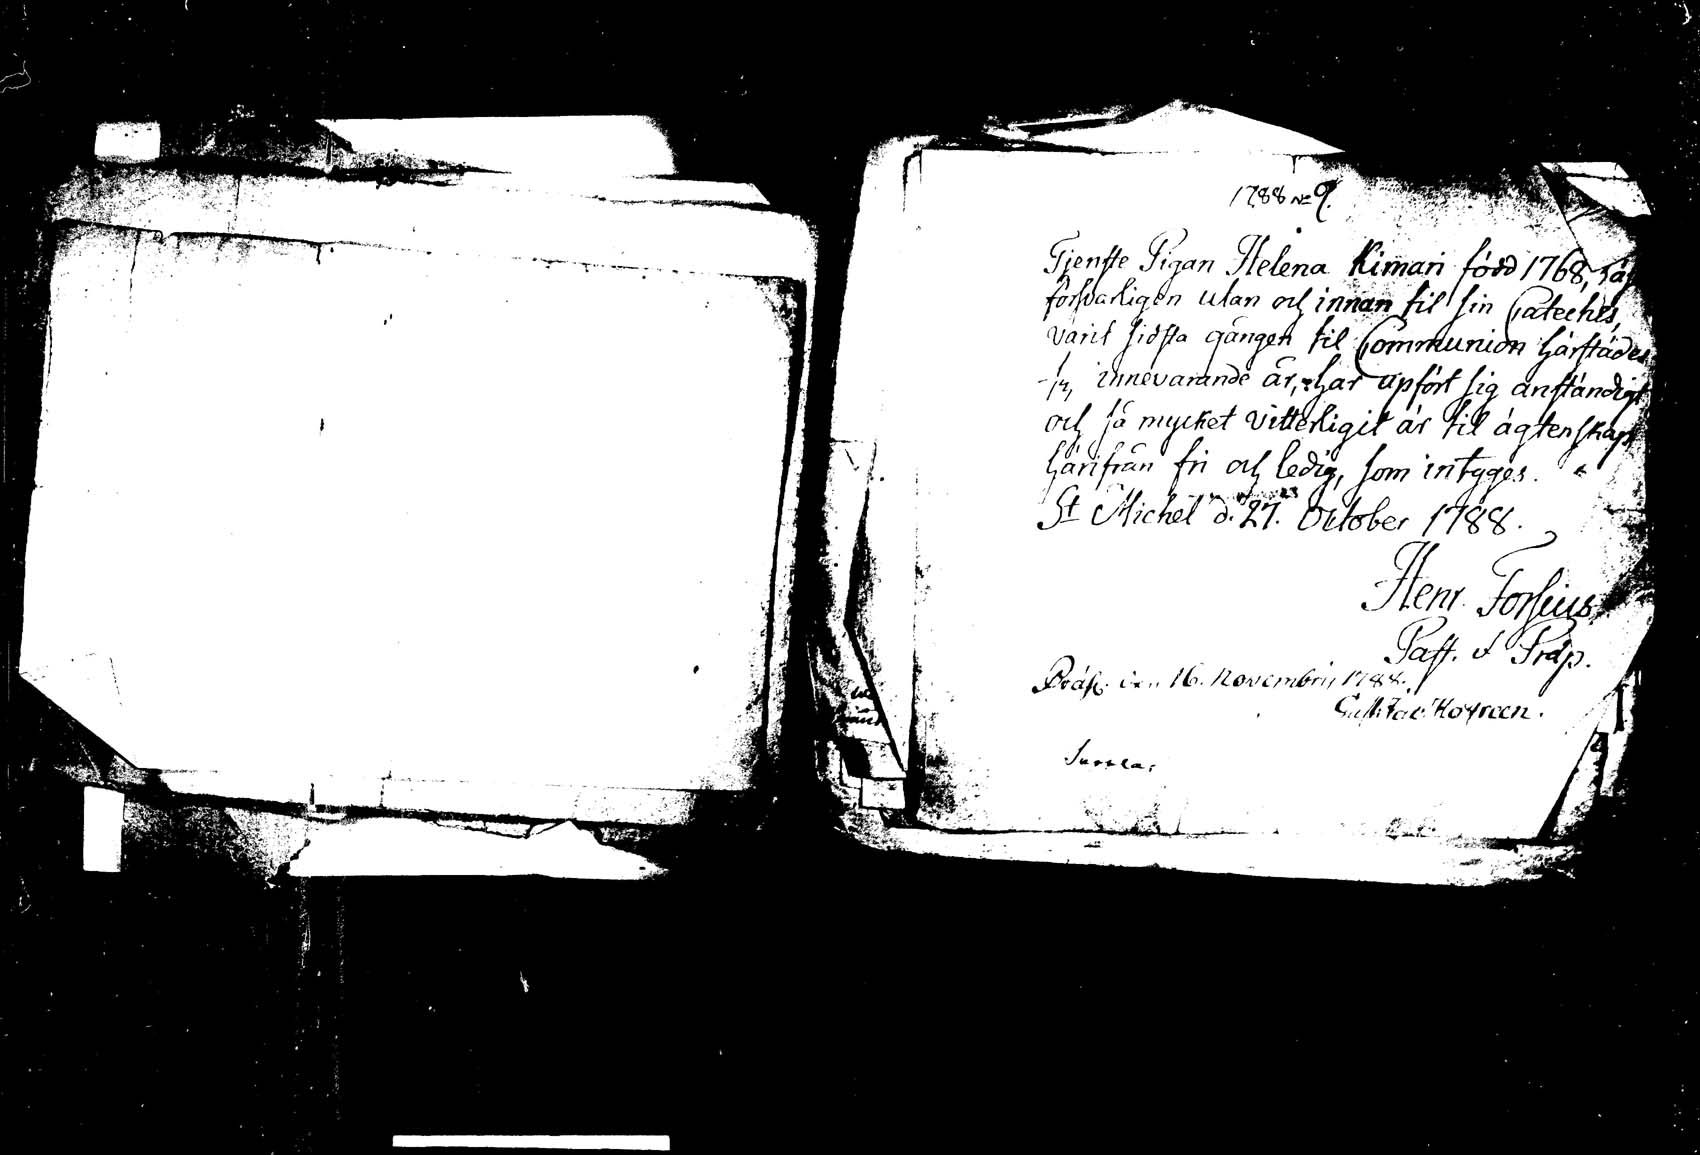 1788 No 9.
Tjenste Pigan Helena Kimari född 1768, läs
försvarligen utan och innan til sin Cateches,
varit sidsta gången til Communion härstädes
innevarande år, har upfört sig anständigt
och så mycket vitterligit är til ägtenskap
härifrån fri och ledig, som intyges.
St Michel d. 27. October 1788.
Henr. Forsius.
Past. & Præp.
den 16. Novembris 1788.
Gustav